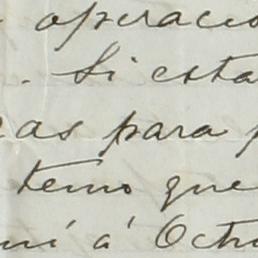 operacio
. Si esta
as para p
temo que
í á Octu